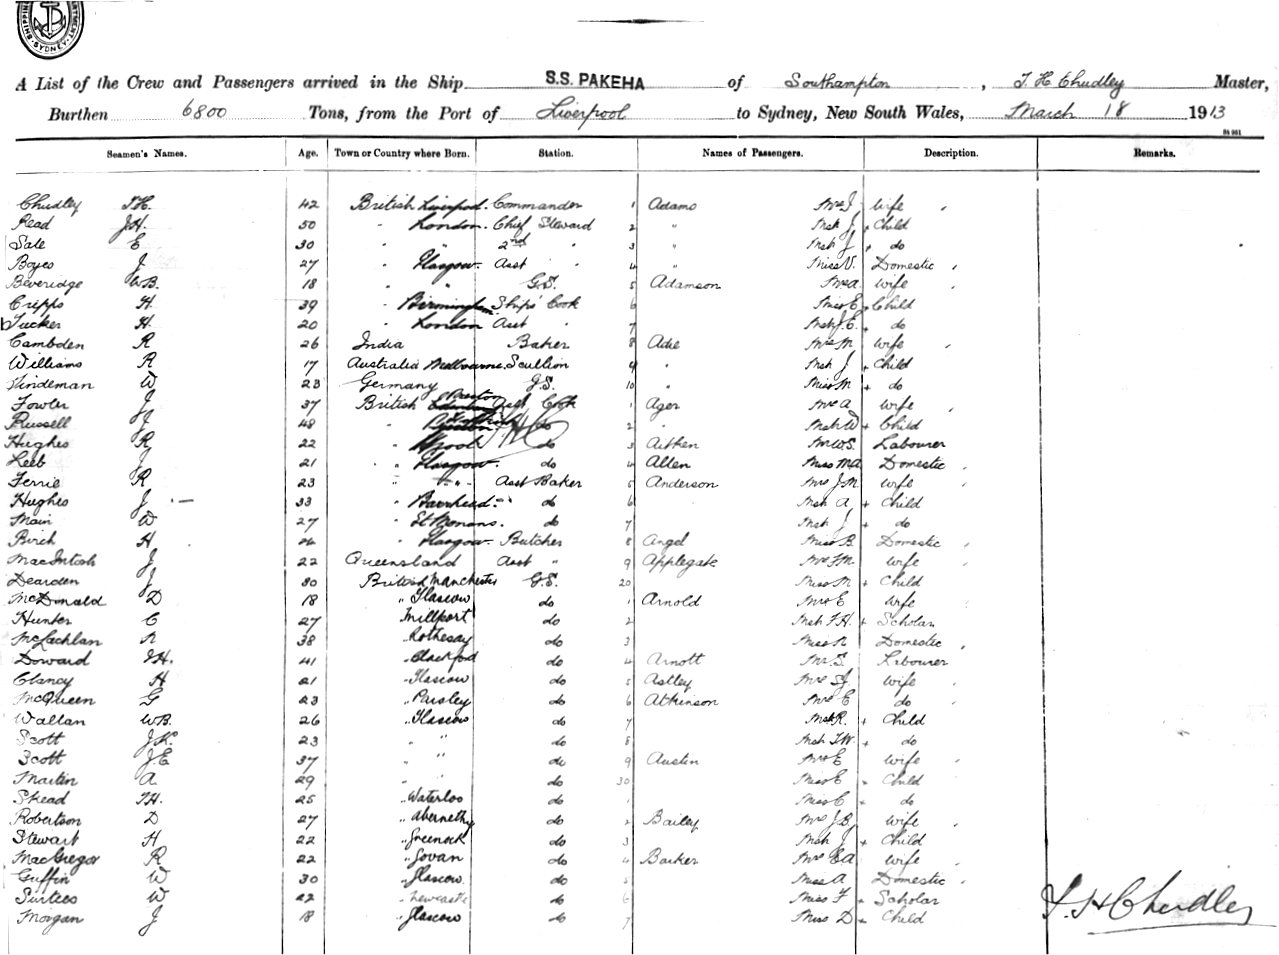 SYDNEY
A List of the Crew and Passengers arrived in the Ship S.S. PAKEHA of Southampton, T H Chudley Master,
Burthen 6800 Tons, from the Port of Liverpool to Sydney, New South Wales, March 18 1913
Seamen's Names. Age. Town or Country where Born. Station. Names of Passengers. Description. Remarks.
Chudley T.H. 42 British Liverpool. Commander 1 Adams Mrs J wife
Read J.H. 50 " London. Chief Steward 2 " Mstr J + Child
Sale E 30 " " 2nd " 3 " Mstr J + do
Boyes J 27 " Glasgow. Asst " 4 " Miss V. Domestic
Beveridge W.B. 18 " " G.S. 5 Adamson Mrs A wife
Cripps H. 39 " Birmingham Ships' Cook 6 Miss E + Child
Tucker H. 20 " London Asst " 7 Mstr J.E. + do
Cambden R 26 India Baker 8 Adie Mrs M wife
Williams R 17 Australia Melbourne. Scullion 9 " Mstr J + Child
Hindeman W 23 Germany G.S. 10 " Miss M + do
Fowler J 37 British Preston Asst Cook 1 Ager Mrs A wife
Russell J 48 " do 2 " Mstr W + Child
Hughes R 22 " do 3 Aitken Mr W.S. Labourer
Leeb J 21 " Glasgow. do 4 Allen Miss M.A. Domestic
Ferrie R 23 " " Asst Baker 5 Anderson Mrs J.M wife
Hughes J. 33 " Barrhead. do 6 Mstr A + Child
Main W 27 " St Monans. do 7 Mstr J + do
Birch H Glasgow. Butcher 8 Angel Miss B. Domestic
MacIntosh J 22 Queensland Asst " 9 Applegate Mrs F.M. wife
Dearden J 30 British Manchester G.S. 20 Miss M + Child
McDonald D 18 " Glascow do 1 Arnold Mrs E wife
Hunter C 27 Millport do 2 Mstr F.H. + Scholar
McLachlan R 38 " Rothesay do 3 Miss R Domestic
Doward J.H. 41 " Blackford do 4 Arnott Mr S. Labourer
Clancy H 21 " Glascow do 5 Astley Mrs S.J wife
McQueen G 23 " Paisley do 6 Atkinson Mrs E do
Wallan W.B. 26 " Glascow do 7 Mstr R. + Child
Scott J.K. 23 " " do 8 Mstr T.W. + do
Scott J.E 37 " " do 9 Austin Mrs E wife
Martin A 29 " " do 30 Miss E Child
Skead T.H. 25 " Waterloo do 1 Miss C do
Robertson D 27 " Abernethy do 2 Bailey Mrs J.B. wife
Stewart H 22 " Greenock do 3 Mstr J + Child
MacGregor R 22 " Govan do 4 Barker Mrs E.A wife
Guffin W 30 " Glascow. do 5 Miss A Domestic
Surtees W 22 " Newcastle do 6 Miss F + Scholar
Morgan J 18 " Glascow do 7 Miss D Child
T. H Chudley